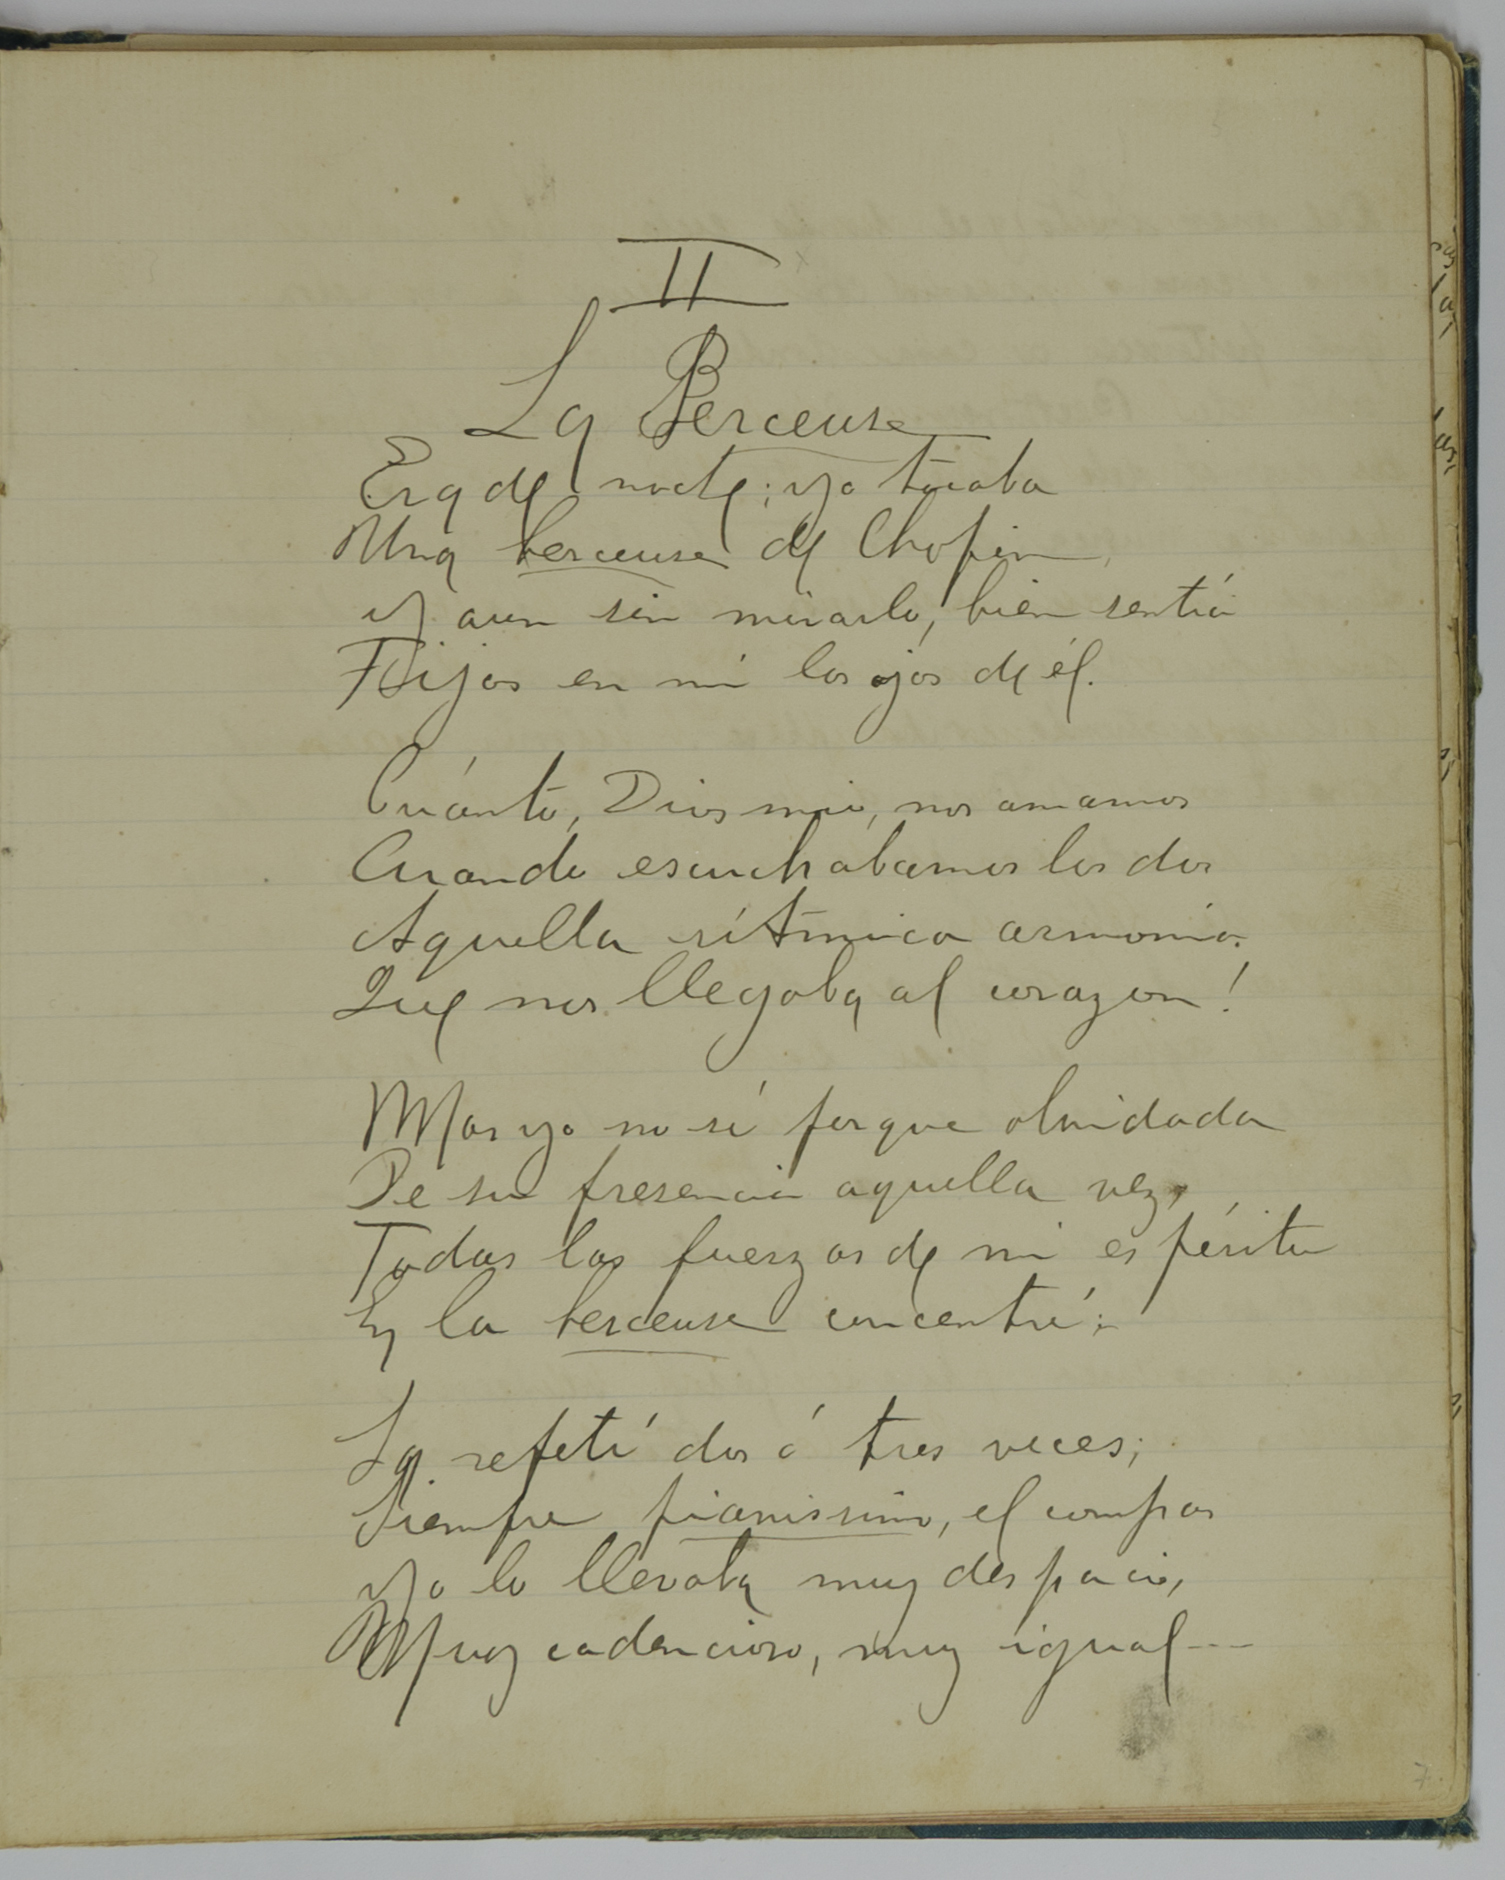 II
La Berceuse
Era de noche; yo tocaba
Una berceuse de Chopin
y aun sin mirarlo, bien sentía
Fijos en mi los ojos de él.
Cuánto, Dios mio, nos amamos
Cuando escuchabamos los dos
Aquella rítmica armonía
Que nos llegaba al corazon!
Mas yo no sé porque olvidada
De su presencia aquella vez,
Todas las fuerzas de mi espíritu
En la berceuse concentré:
La repetí dos ó tres veces;
Siempre pianissimo, el compas
yo lo llevaba muy despacio,
Muy cadencioso, muy igual---
7.